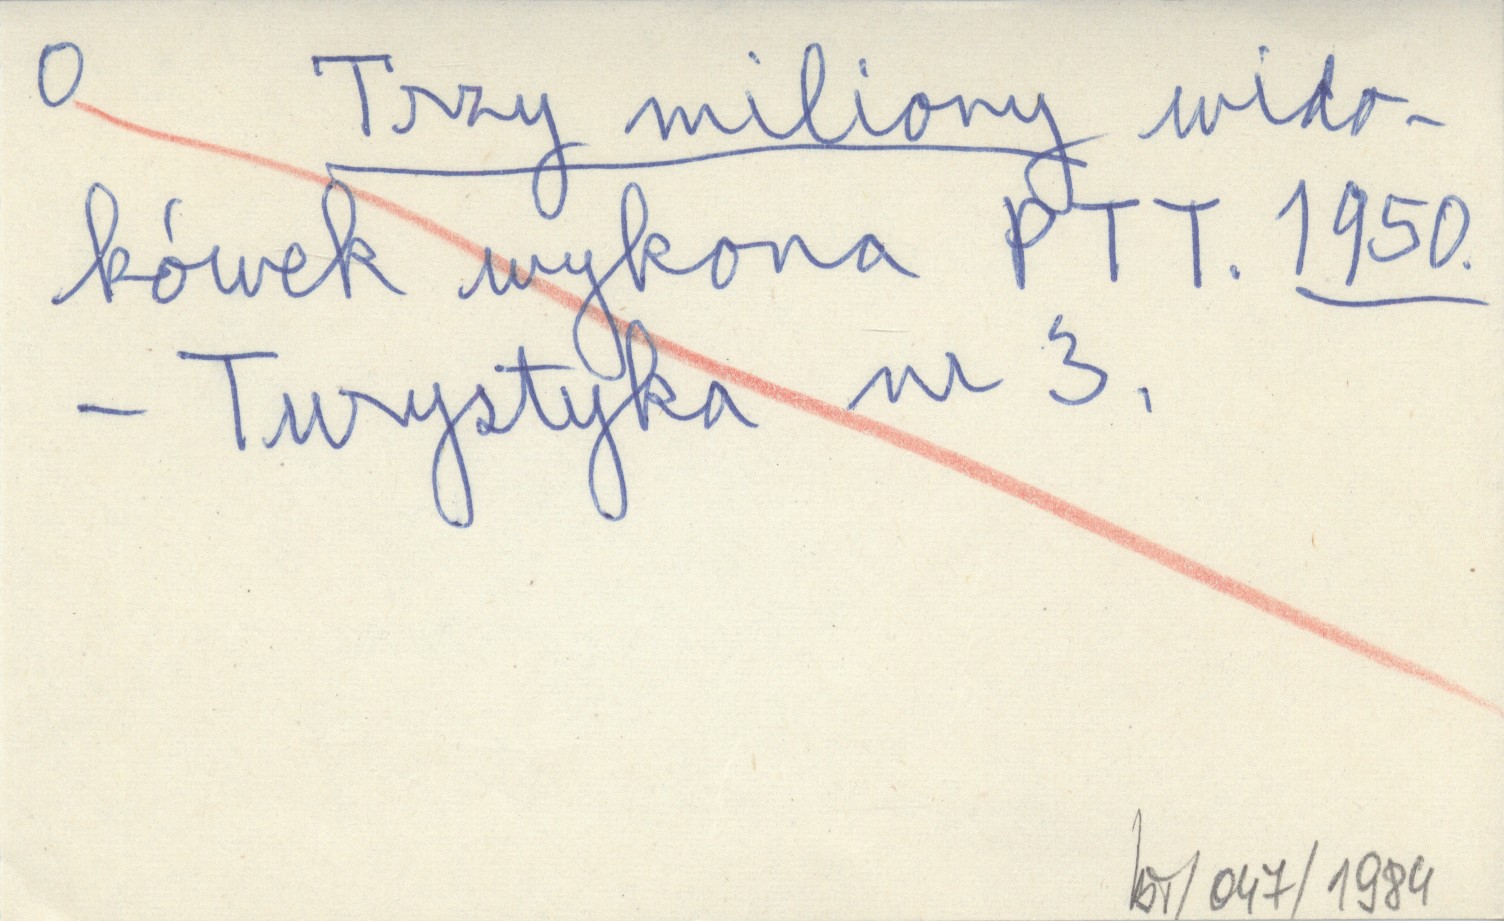 O Trzy miliony wido-
kówek wykona PTT. 1950.
- Turystyka nr 3.
047/1984